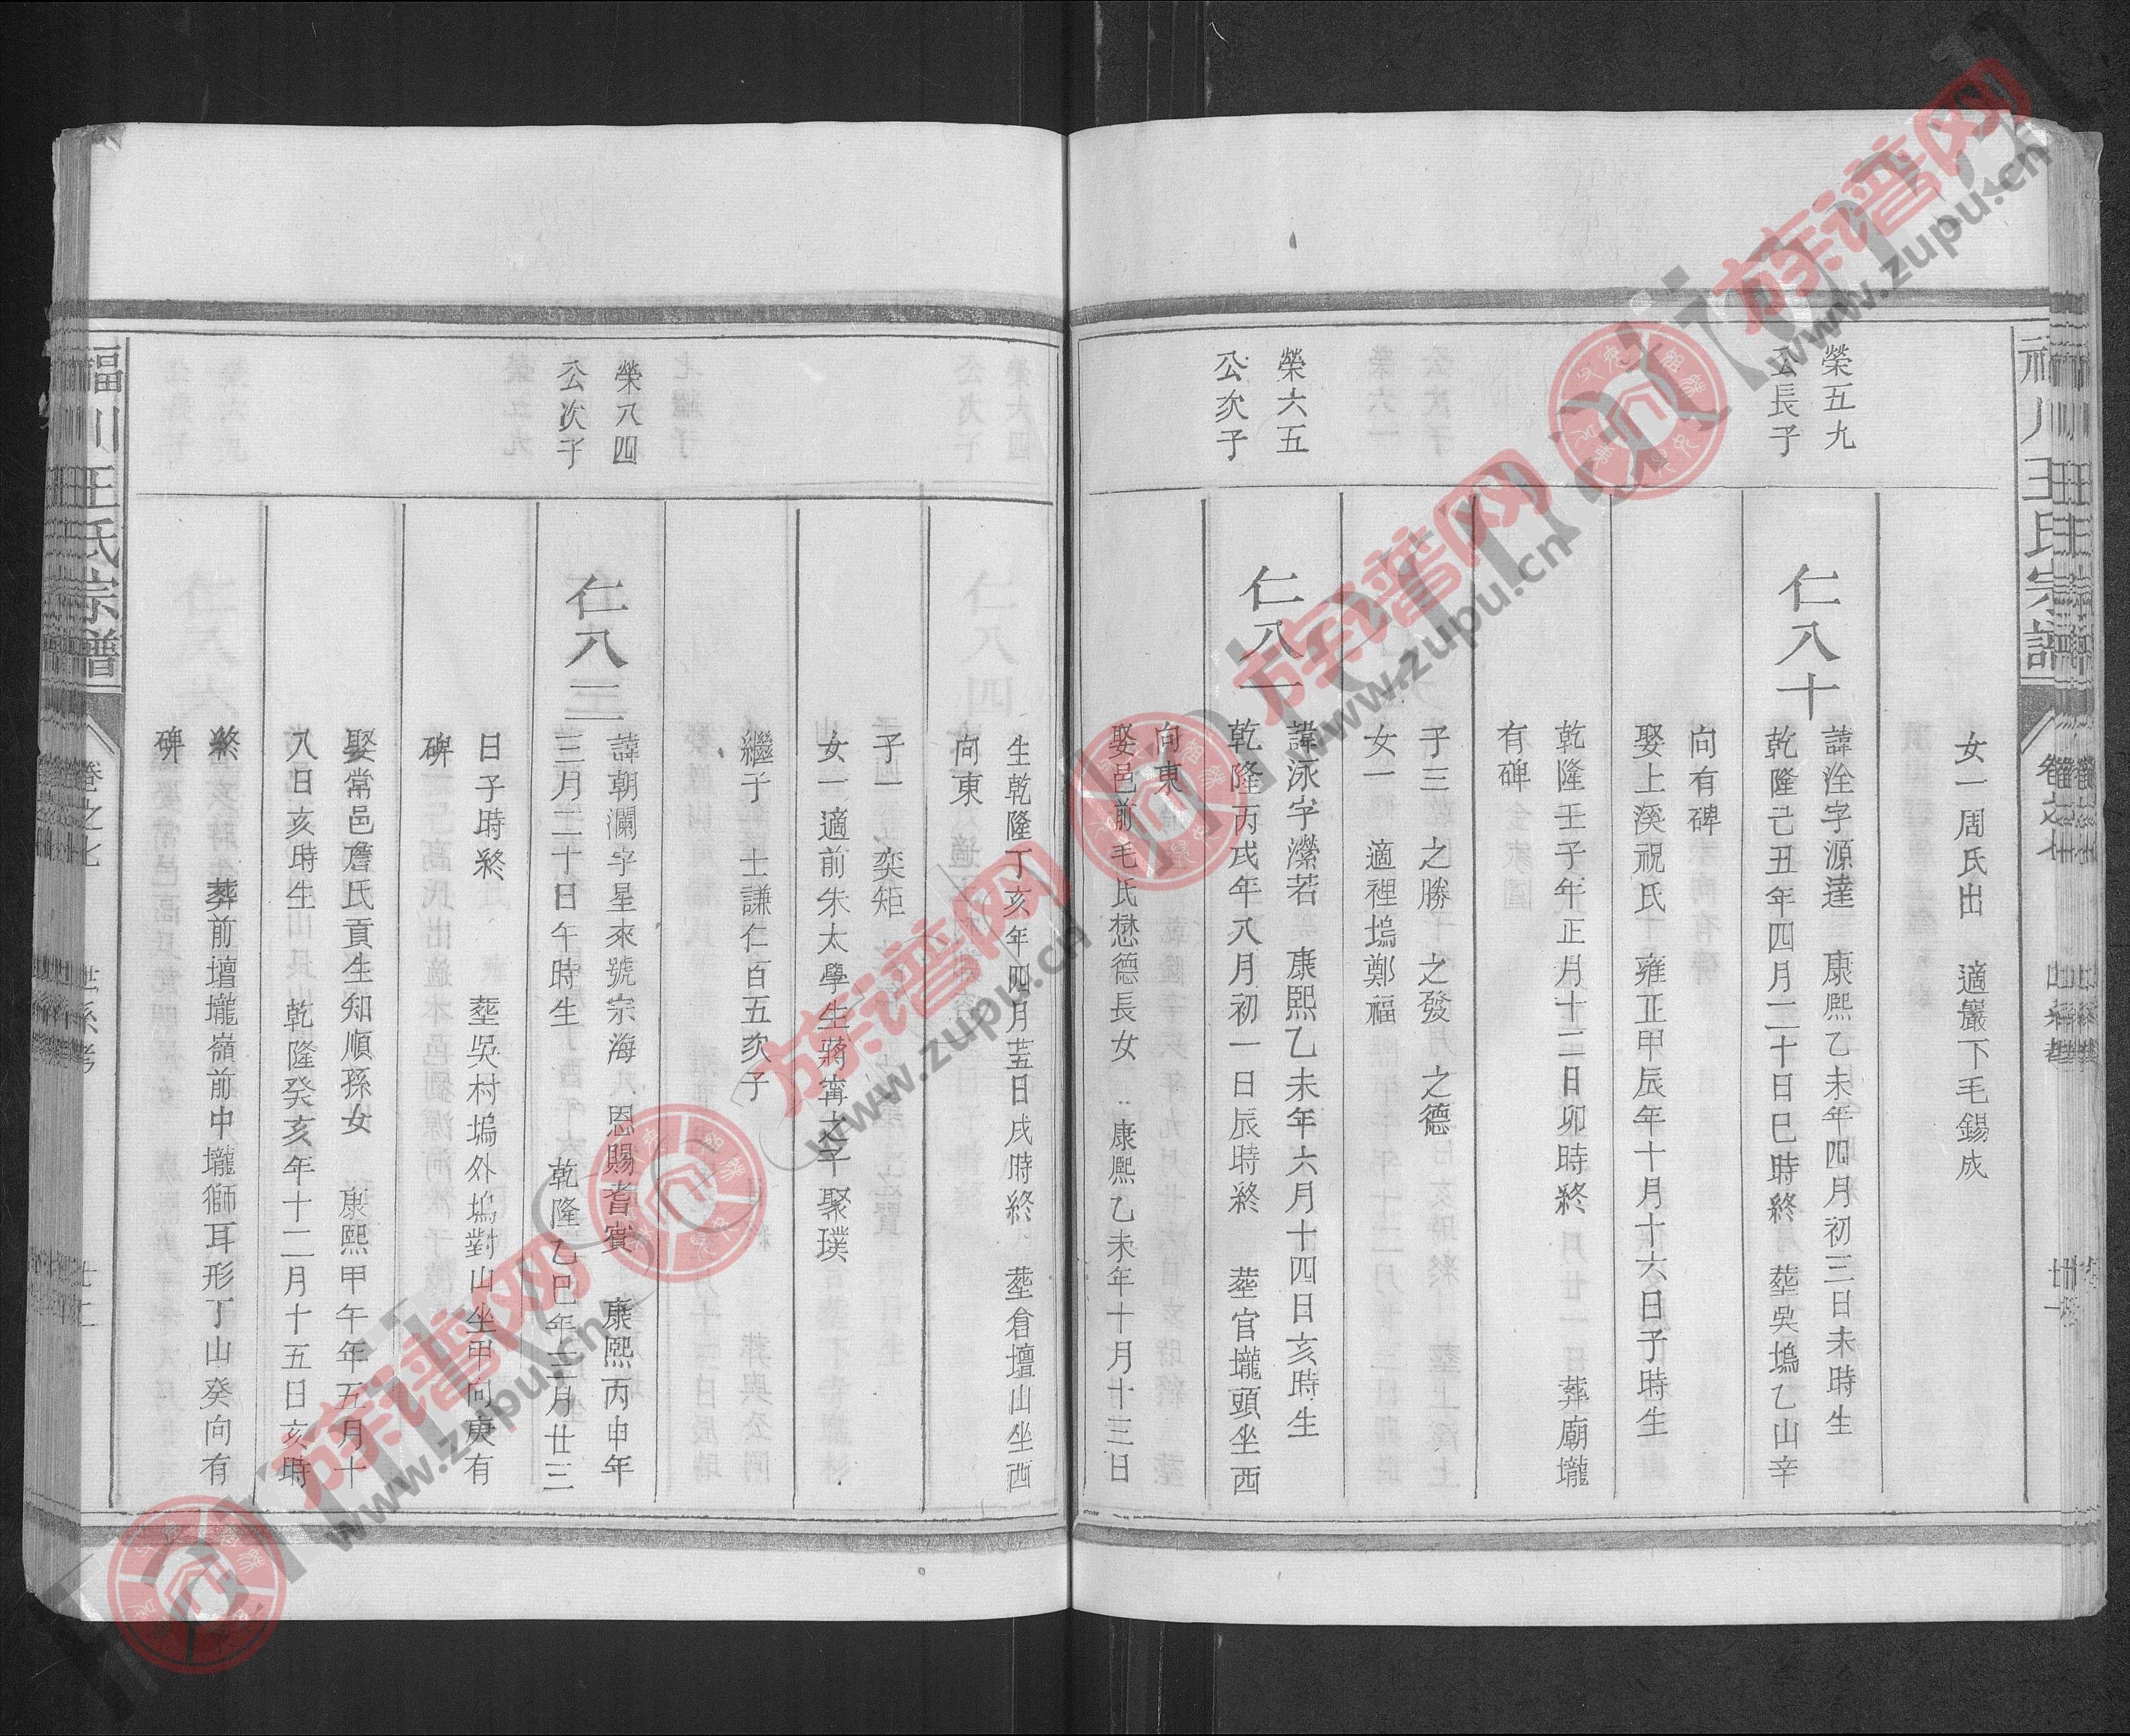 女一周氏出　適巖下毛錫成
榮五九
公長子
仁八十
諱洤字源達　康熙乙未年四月初三日未時生
乾隆己丑年四月二十日巳時終　塟吳塢乙山辛
向有碑
娶上溪祝氏　雍正甲辰年十月十六日子時生
乾隆壬子年正月十二日卯時終　葬廟壠
有碑
子三　之勝　之發　之德
女一　適裡塢鄭福
榮六五
公次子
仁八一
諱泳字濴若　康熙乙未年六月十四日亥時生
乾隆丙戌年八月初一日辰時終　塟官壠頭坐西
向東
娶邑前毛氏懋德長女　康熙乙未年十月十三日
生乾隆丁亥年四月廿五日戌時終　塟倉壇山坐西
向東
子一　奕矩
女一適前朱太學生蔣甯之子聚璞
繼子　士謙仁百五次子
榮八四
公次子
仁八三
諱朝瀾字星來號宗海　恩賜耆賓　康熙丙申年
三月二十日午時生　乾隆乙巳年三月廿三
日子時終　塟吳村塢外塢對山坐甲向庚有
碑
娶常邑詹氏貢生知順孫女　康熙甲午年五月十
八日亥時生　乾隆癸亥年十二月十五日亥時
終　葬前壇壠嶺前中壠獅耳形丁山癸向有
碑
福川王氏宗譜
卷之七
世系考
族谱网
www.zupu.cn
族谱网
www.zupu.cn
族谱网
www.zupu.cn
族谱网
www.zupu.cn